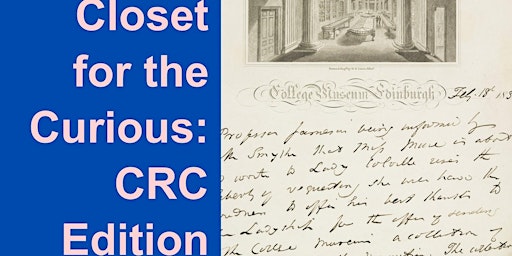 Closet
for the
Curious:
CRC
Edition
College Museum Edinburgh Feby 18th 183
Professor Jameson being informed by
Smythe that Miss Mure is about
to Lady Colville uses the
liberty of requesting she will have the
kindness to offer his best thanks to
Ladyship for the offer of sending
the College Museum a collection of
The collection